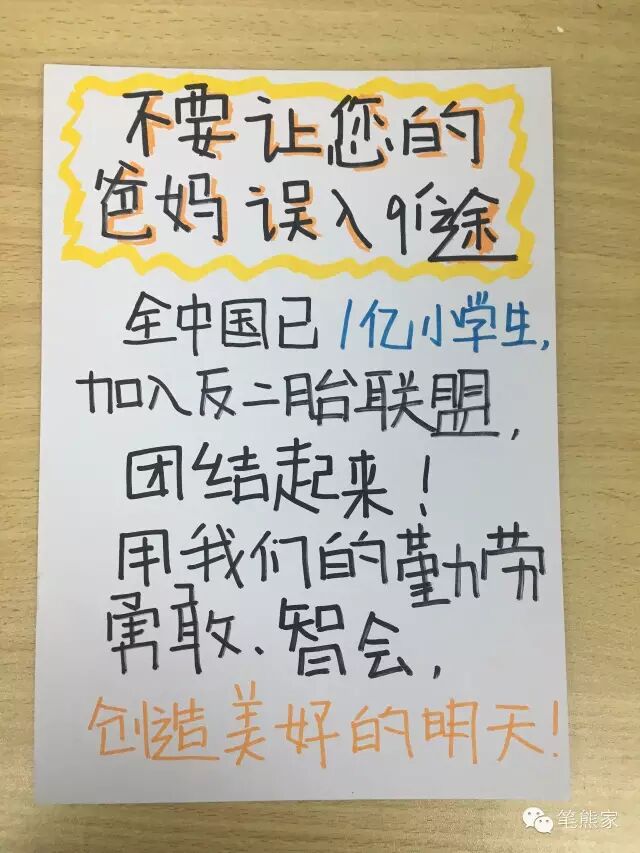 不要让您的
爸妈误入途
全中国已1亿小学生,
加入反二胎联盟,
团结起来!
用我们的勤劳
勇敢、智会,
创造美好的明天!
笔熊家